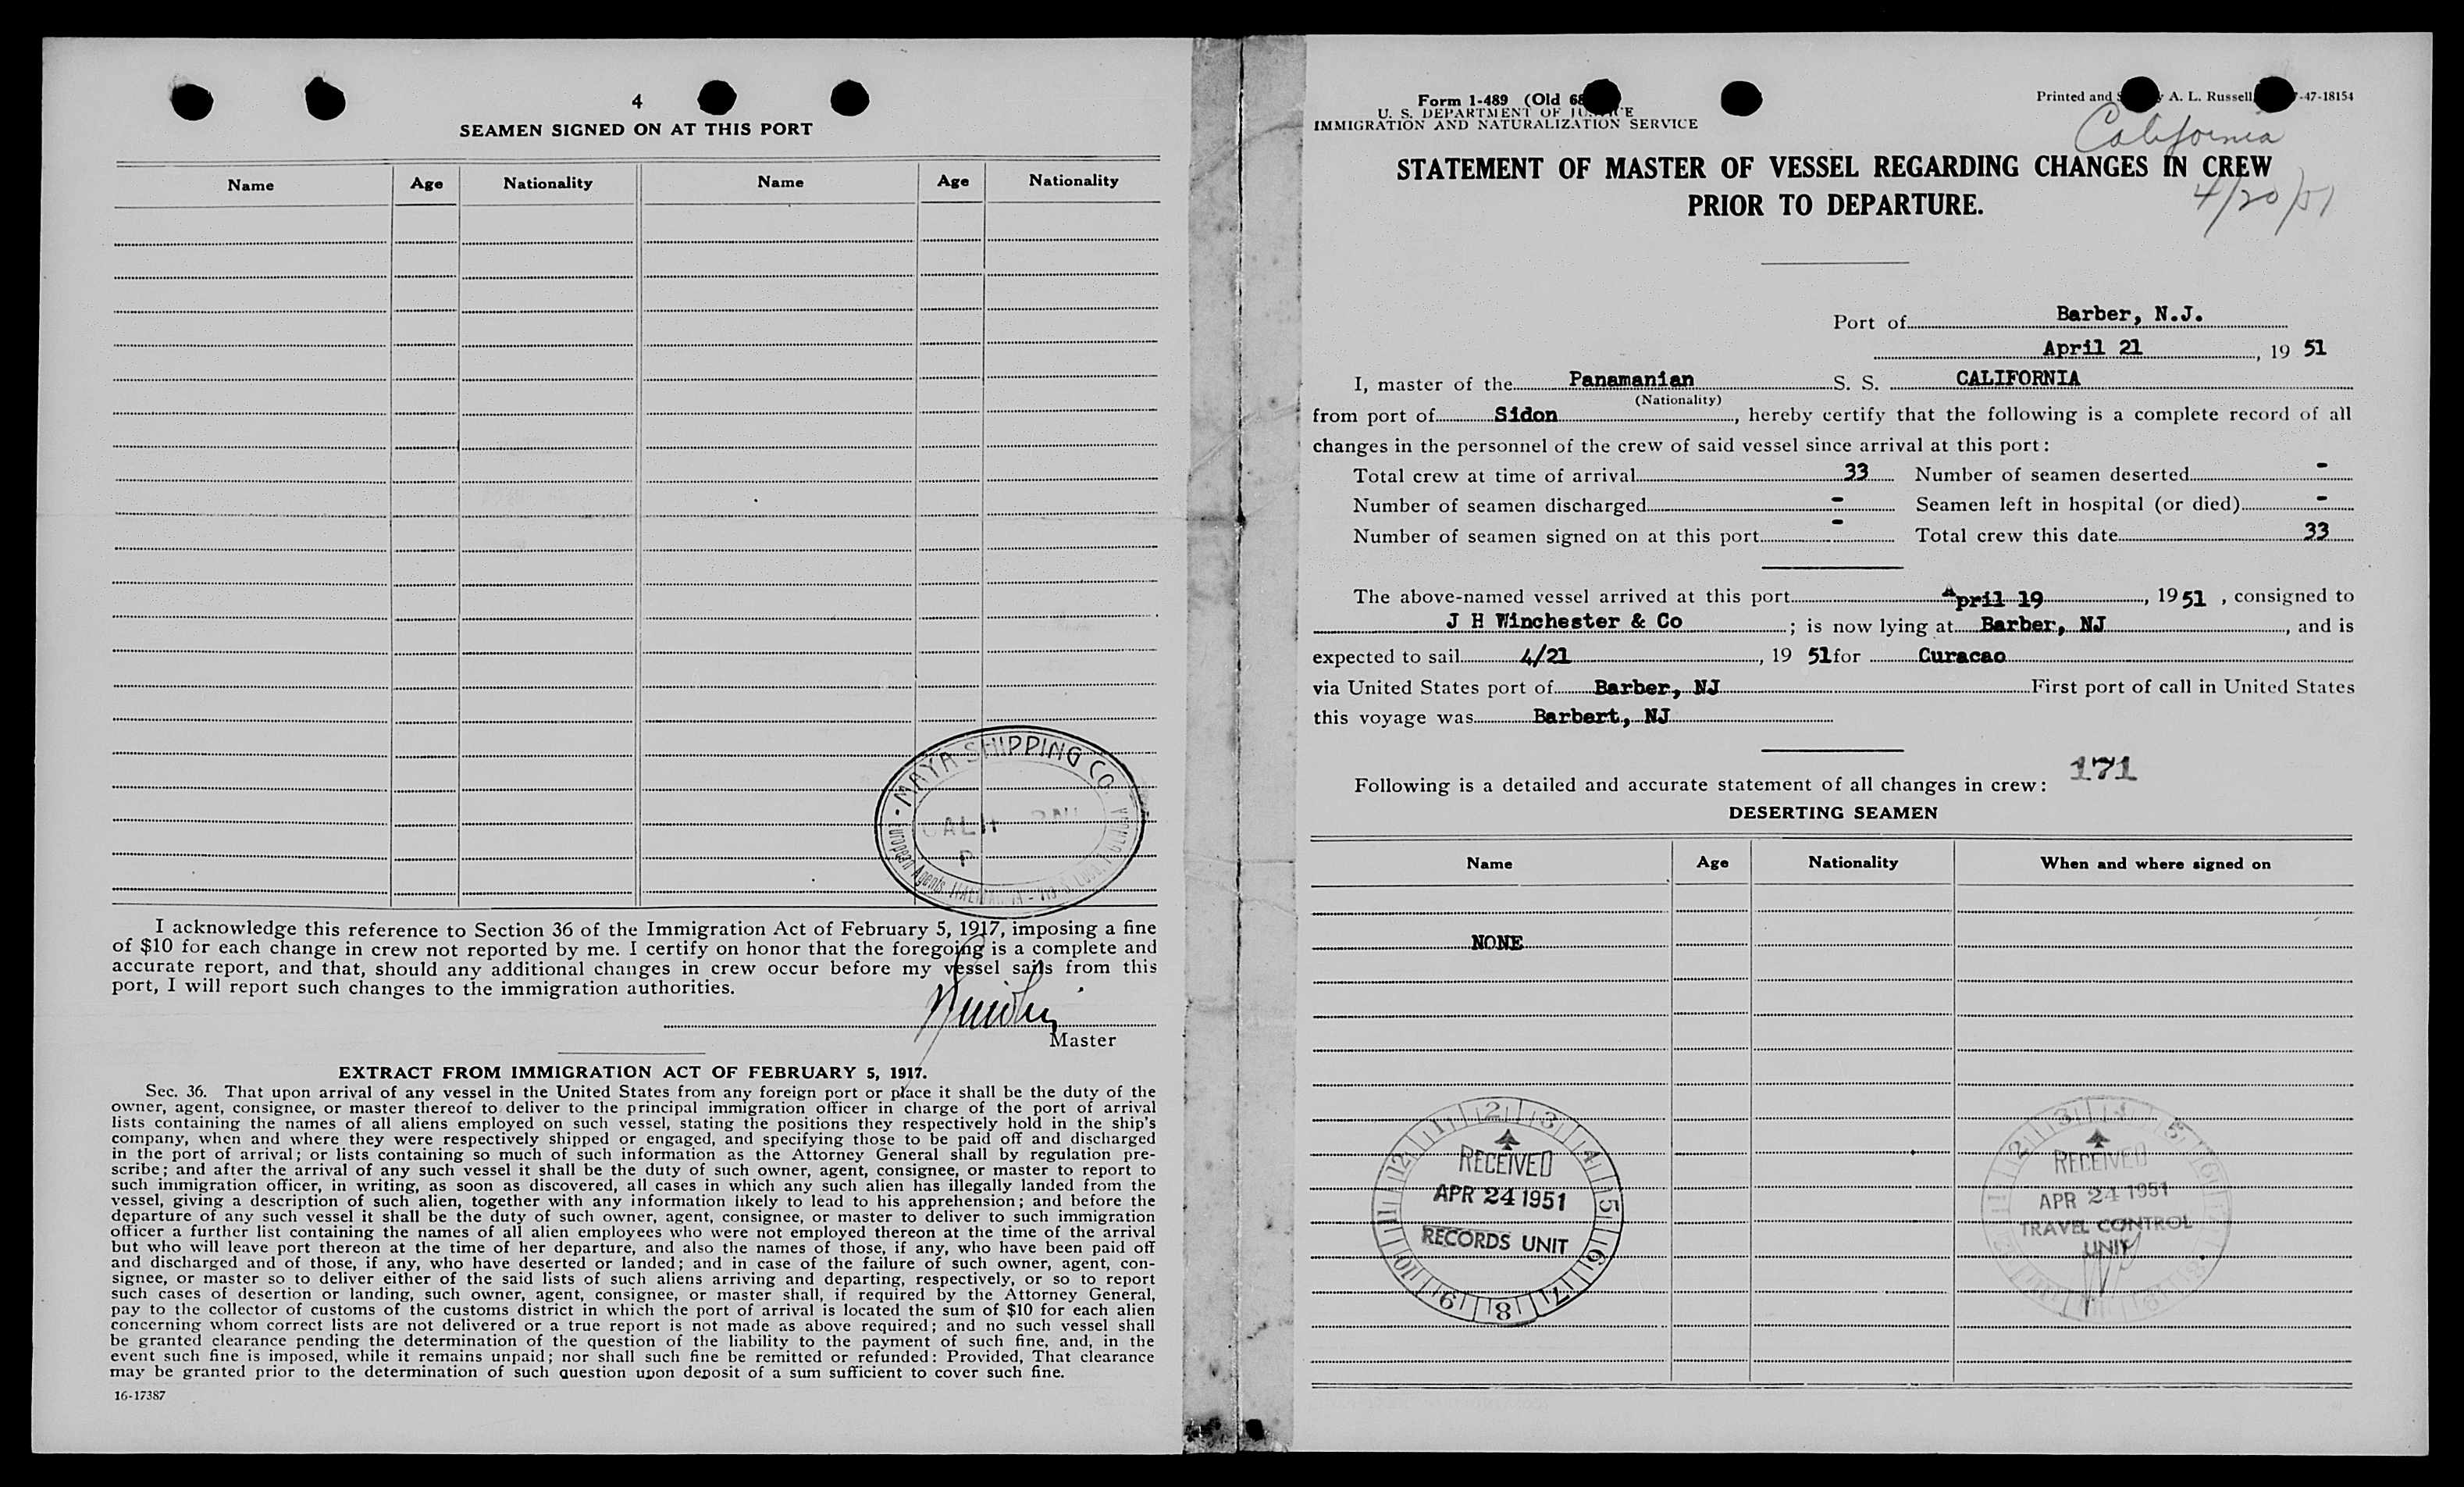 4
SEAMEN SIGNED ON AT THIS PORT
Name Age Nationality Name Age Nationality
MAYA SHIPPING CO.
European Agents
I acknowledge this reference to Section 36 of the Immigration Act of February 5, 1917, imposing a fine
of $10 for each change in crew not reported by me. I certify on honor that the foregoing is a complete and
accurate report, and that, should any additional changes in crew occur before my vessel sails from this
port, I will report such changes to the immigration authorities.
Master
EXTRACT FROM IMMIGRATION ACT OF FEBRUARY 5, 1917.
Sec. 36. That upon arrival of any vessel in the United States from any foreign port or place it shall be the duty of the
owner, agent, consignee, or master thereof to deliver to the principal immigration officer in charge of the port of arrival
lists containing the names of all aliens employed on such vessel, stating the positions they respectively hold in the ship's
company, when and where they were respectively shipped or engaged, and specifying those to be paid off and discharged
in the port of arrival; or lists containing so much of such information as the Attorney General shall by regulation pre-
scribe; and after the arrival of any such vessel it shall be the duty of such owner, agent, consignee, or master to report to
such immigration officer, in writing, as soon as discovered, all cases in which any such alien has illegally landed from the
vessel, giving a description of such alien, together with any information likely to lead to his apprehension; and before the
departure of any such vessel it shall be the duty of such owner, agent, consignee, or master to deliver to such immigration
officer a further list containing the names of all alien employees who were not employed thereon at the time of the arrival
but who will leave port thereon at the time of her departure, and also the names of those, if any, who have been paid off
and discharged and of those, if any, who have deserted or landed; and in case of the failure of such owner, agent, con-
signee, or master so to deliver either of the said lists of such aliens arriving and departing, respectively, or so to report
such cases of desertion or landing, such owner, agent, consignee, or master shall, if required by the Attorney General,
pay to the collector of customs of the customs district in which the port of arrival is located the sum of $10 for each alien
concerning whom correct lists are not delivered or a true report is not made as above required; and no such vessel shall
be granted clearance pending the determination of the question of the liability to the payment of such fine, and, in the
event such fine is imposed, while it remains unpaid; nor shall such fine be remitted or refunded: Provided, That clearance
may be granted prior to the determination of such question upon deposit of a sum sufficient to cover such fine.
16-17387
Form 1-489 (Old 68
U. S. DEPARTMENT OF JUSTICE
IMMIGRATION AND NATURALIZATION SERVICE
Printed and A. L. Russell -47-18154
California
STATEMENT OF MASTER OF VESSEL REGARDING CHANGES IN CREW
PRIOR TO DEPARTURE.
4/20/51
Port of Barber, N.J.
April 21, 19 51
I, master of the Panamanian S. S. CALIFORNIA
(Nationality)
from port of Sidon, hereby certify that the following is a complete record of all
changes in the personnel of the crew of said vessel since arrival at this port:
Total crew at time of arrival 33 Number of seamen deserted -
Number of seamen discharged - Seamen left in hospital (or died) -
Number of seamen signed on at this port - Total crew this date 33
The above-named vessel arrived at this port April 19, 19 51, consigned to
J H Winchester & Co; is now lying at Barber, NJ, and is
expected to sail 4/21, 19 51 for Curacao
via United States port of Barber, NJ First port of call in United States
this voyage was Barbert, NJ
Following is a detailed and accurate statement of all changes in crew: 171
DESERTING SEAMEN
Name Age Nationality When and where signed on
NONE
RECEIVED
APR 24 1951
RECORDS UNIT
RECEIVED
APR 24 1951
TRAVEL CONTROL
UNIT